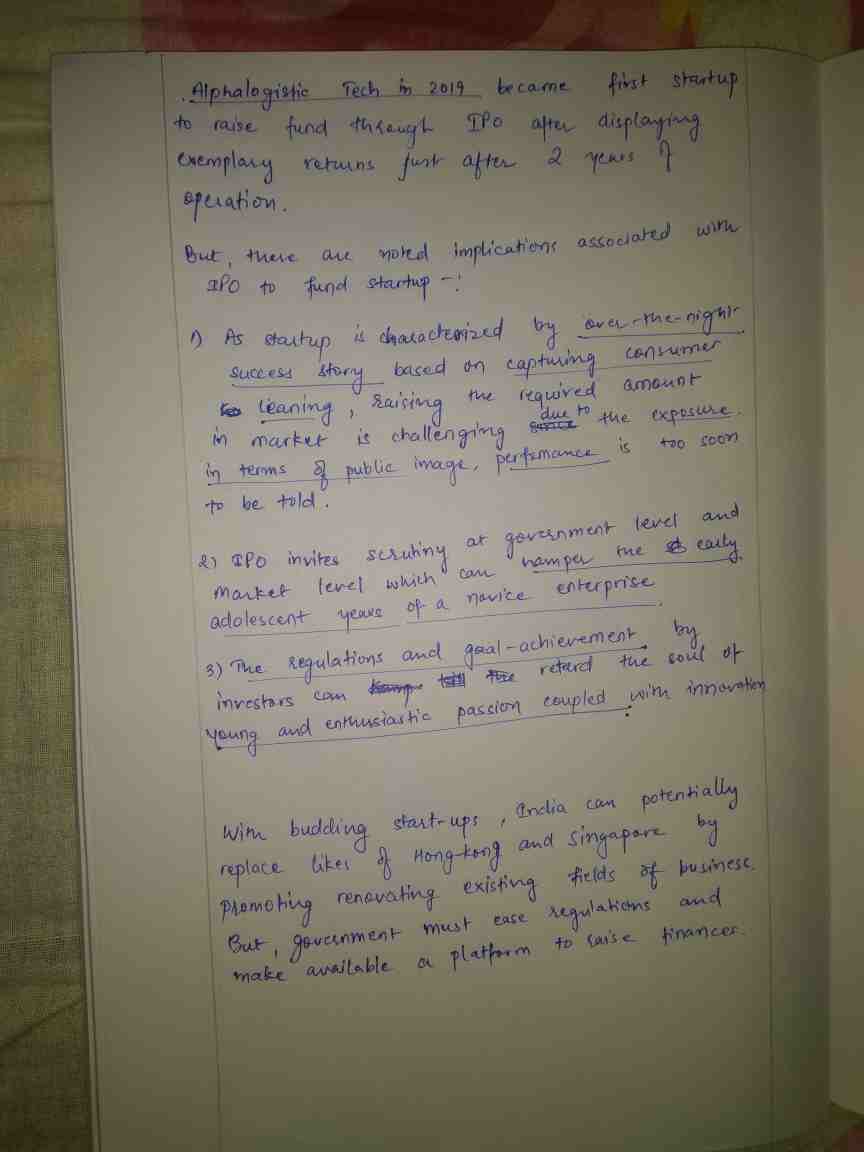 . Alphalogistic Tech in 2019 became first startup
to raise fund through IPO after displaying
exemplary returns just after 2 years of
operation.
But, there are noted implications associated with
IPO to fund startup -:
1) As startup is characterized by over-the-night
success story based on capturing consumer
leaning, raising the required amount
in market is challenging due to the exposure
in terms of public image, performance is too soon
to be told.
2) IPO invites scrutiny at government level and
market level which can hamper the early
adolescent years of a novice enterprise
3) The regulations and goal-achievement by
investors can retard the soul of
young and enthusiastic passion coupled with innovation
With budding start-ups, India can potentially
replace likes of Hong-kong and Singapore by
promoting renovating existing fields of business.
But, government must ease regulations and
make available a platform to raise finances.